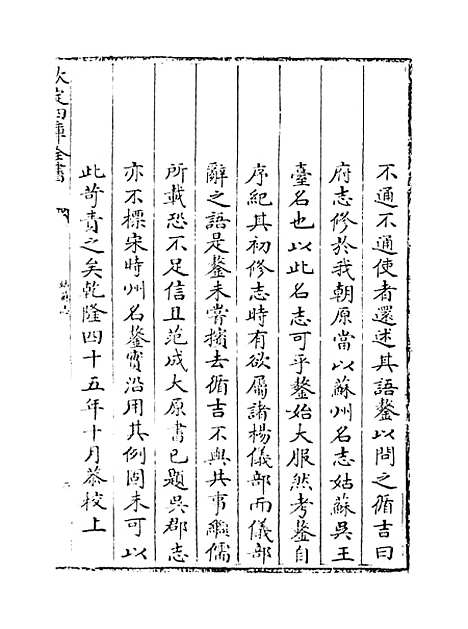 不通不通使者還述其語鏊以問之循吉曰
府志修於我朝原當以蘇州名志姑蘇吳王
臺名也以此名志可乎鏊始大服然考鏊自
序紀其初修志時有欲屬諸楊儀部而儀部
辭之語是鏊未嘗擯去循吉不與共事繼儒
所載恐不足信且范成大原書已題吳郡志
亦不標宋時州名鏊實沿用其例固未可以
此苛責之矣乾隆四十五年十月恭校上
欽定四庫全書